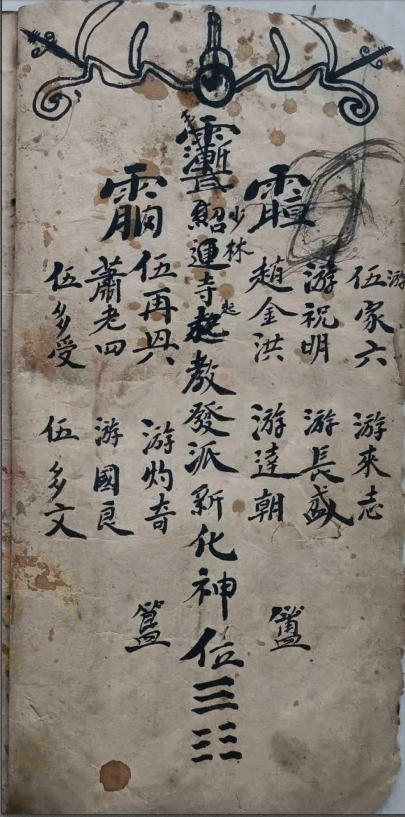 游
伍家六　游來志
游祝明　游長盛
趙金洪　游達朝
少林
紹運寺起教發派新化神位
起
伍再興　游灼奇
蕭老四　游國良
伍多受　伍多文